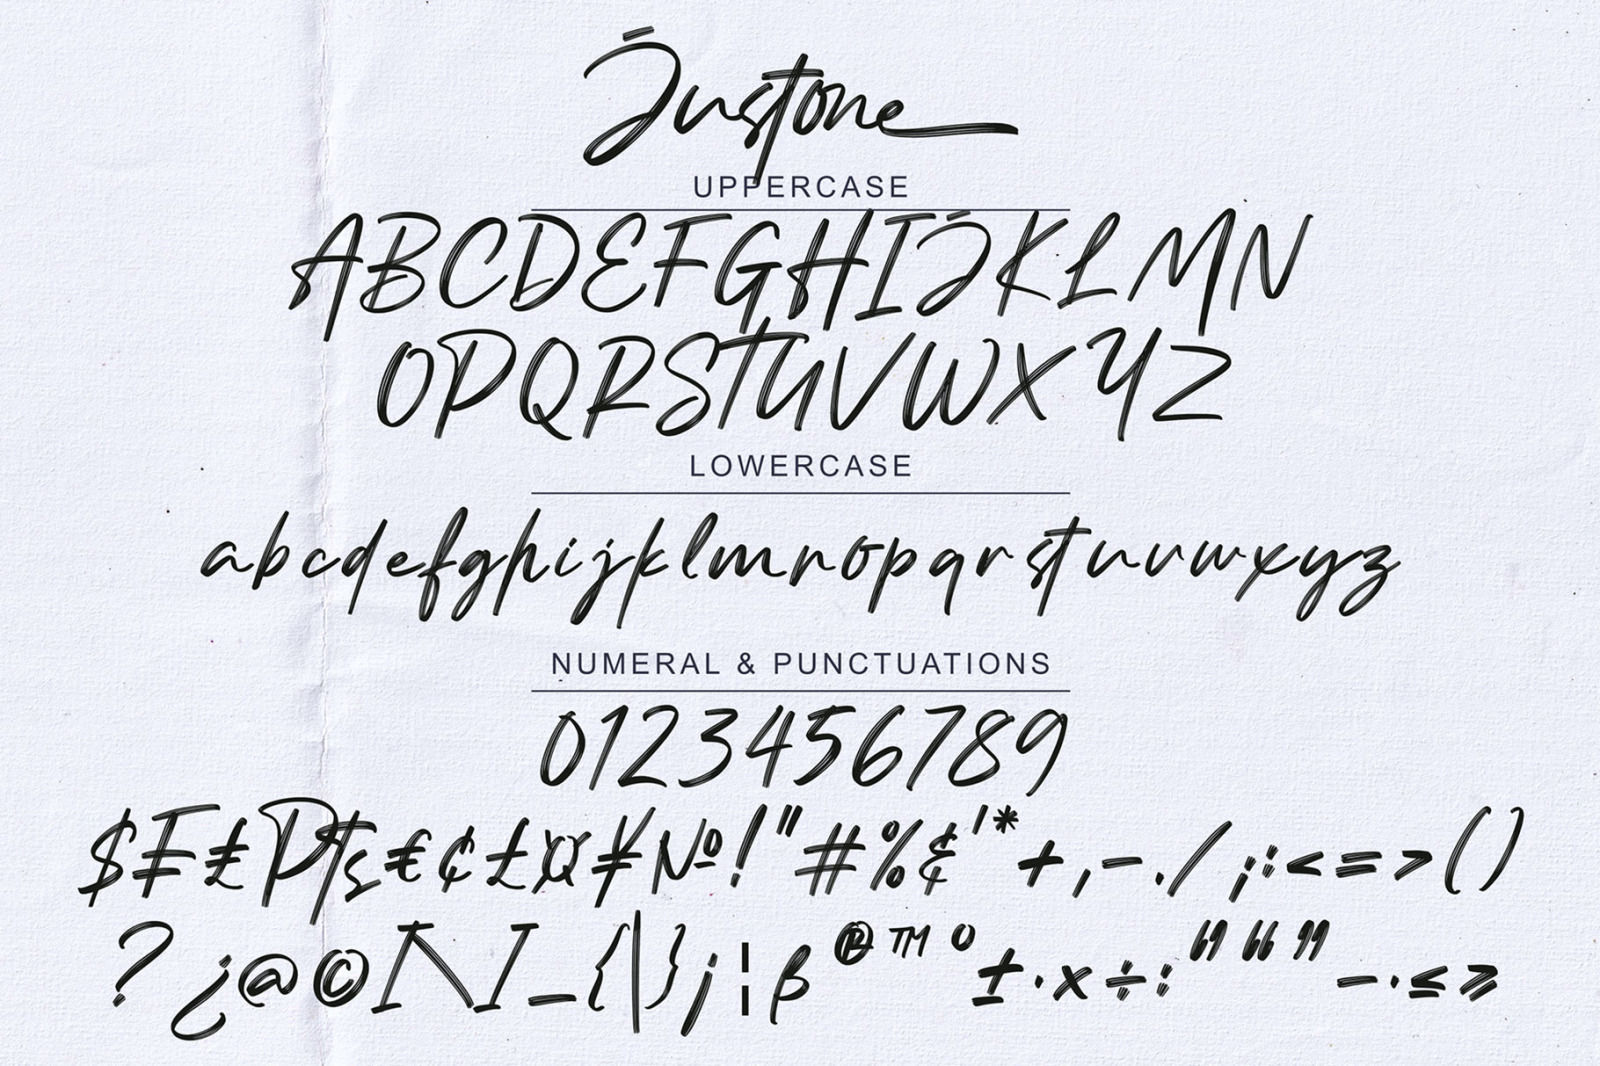 Justone
UPPERCASE
ABCDEFGHIJKLMN
OPQRSTUVWXYZ
LOWERCASE
abcdefghijklmnopqrstuvwxyz
NUMERAL & PUNCTUATIONS
0123456789
$₣₤₧€¢£¤¥№!"#%&'*+,-./;:<=>()
?¿@©[\]_{|}¡¦ß®™°±·×÷:“”“”–·≤≥